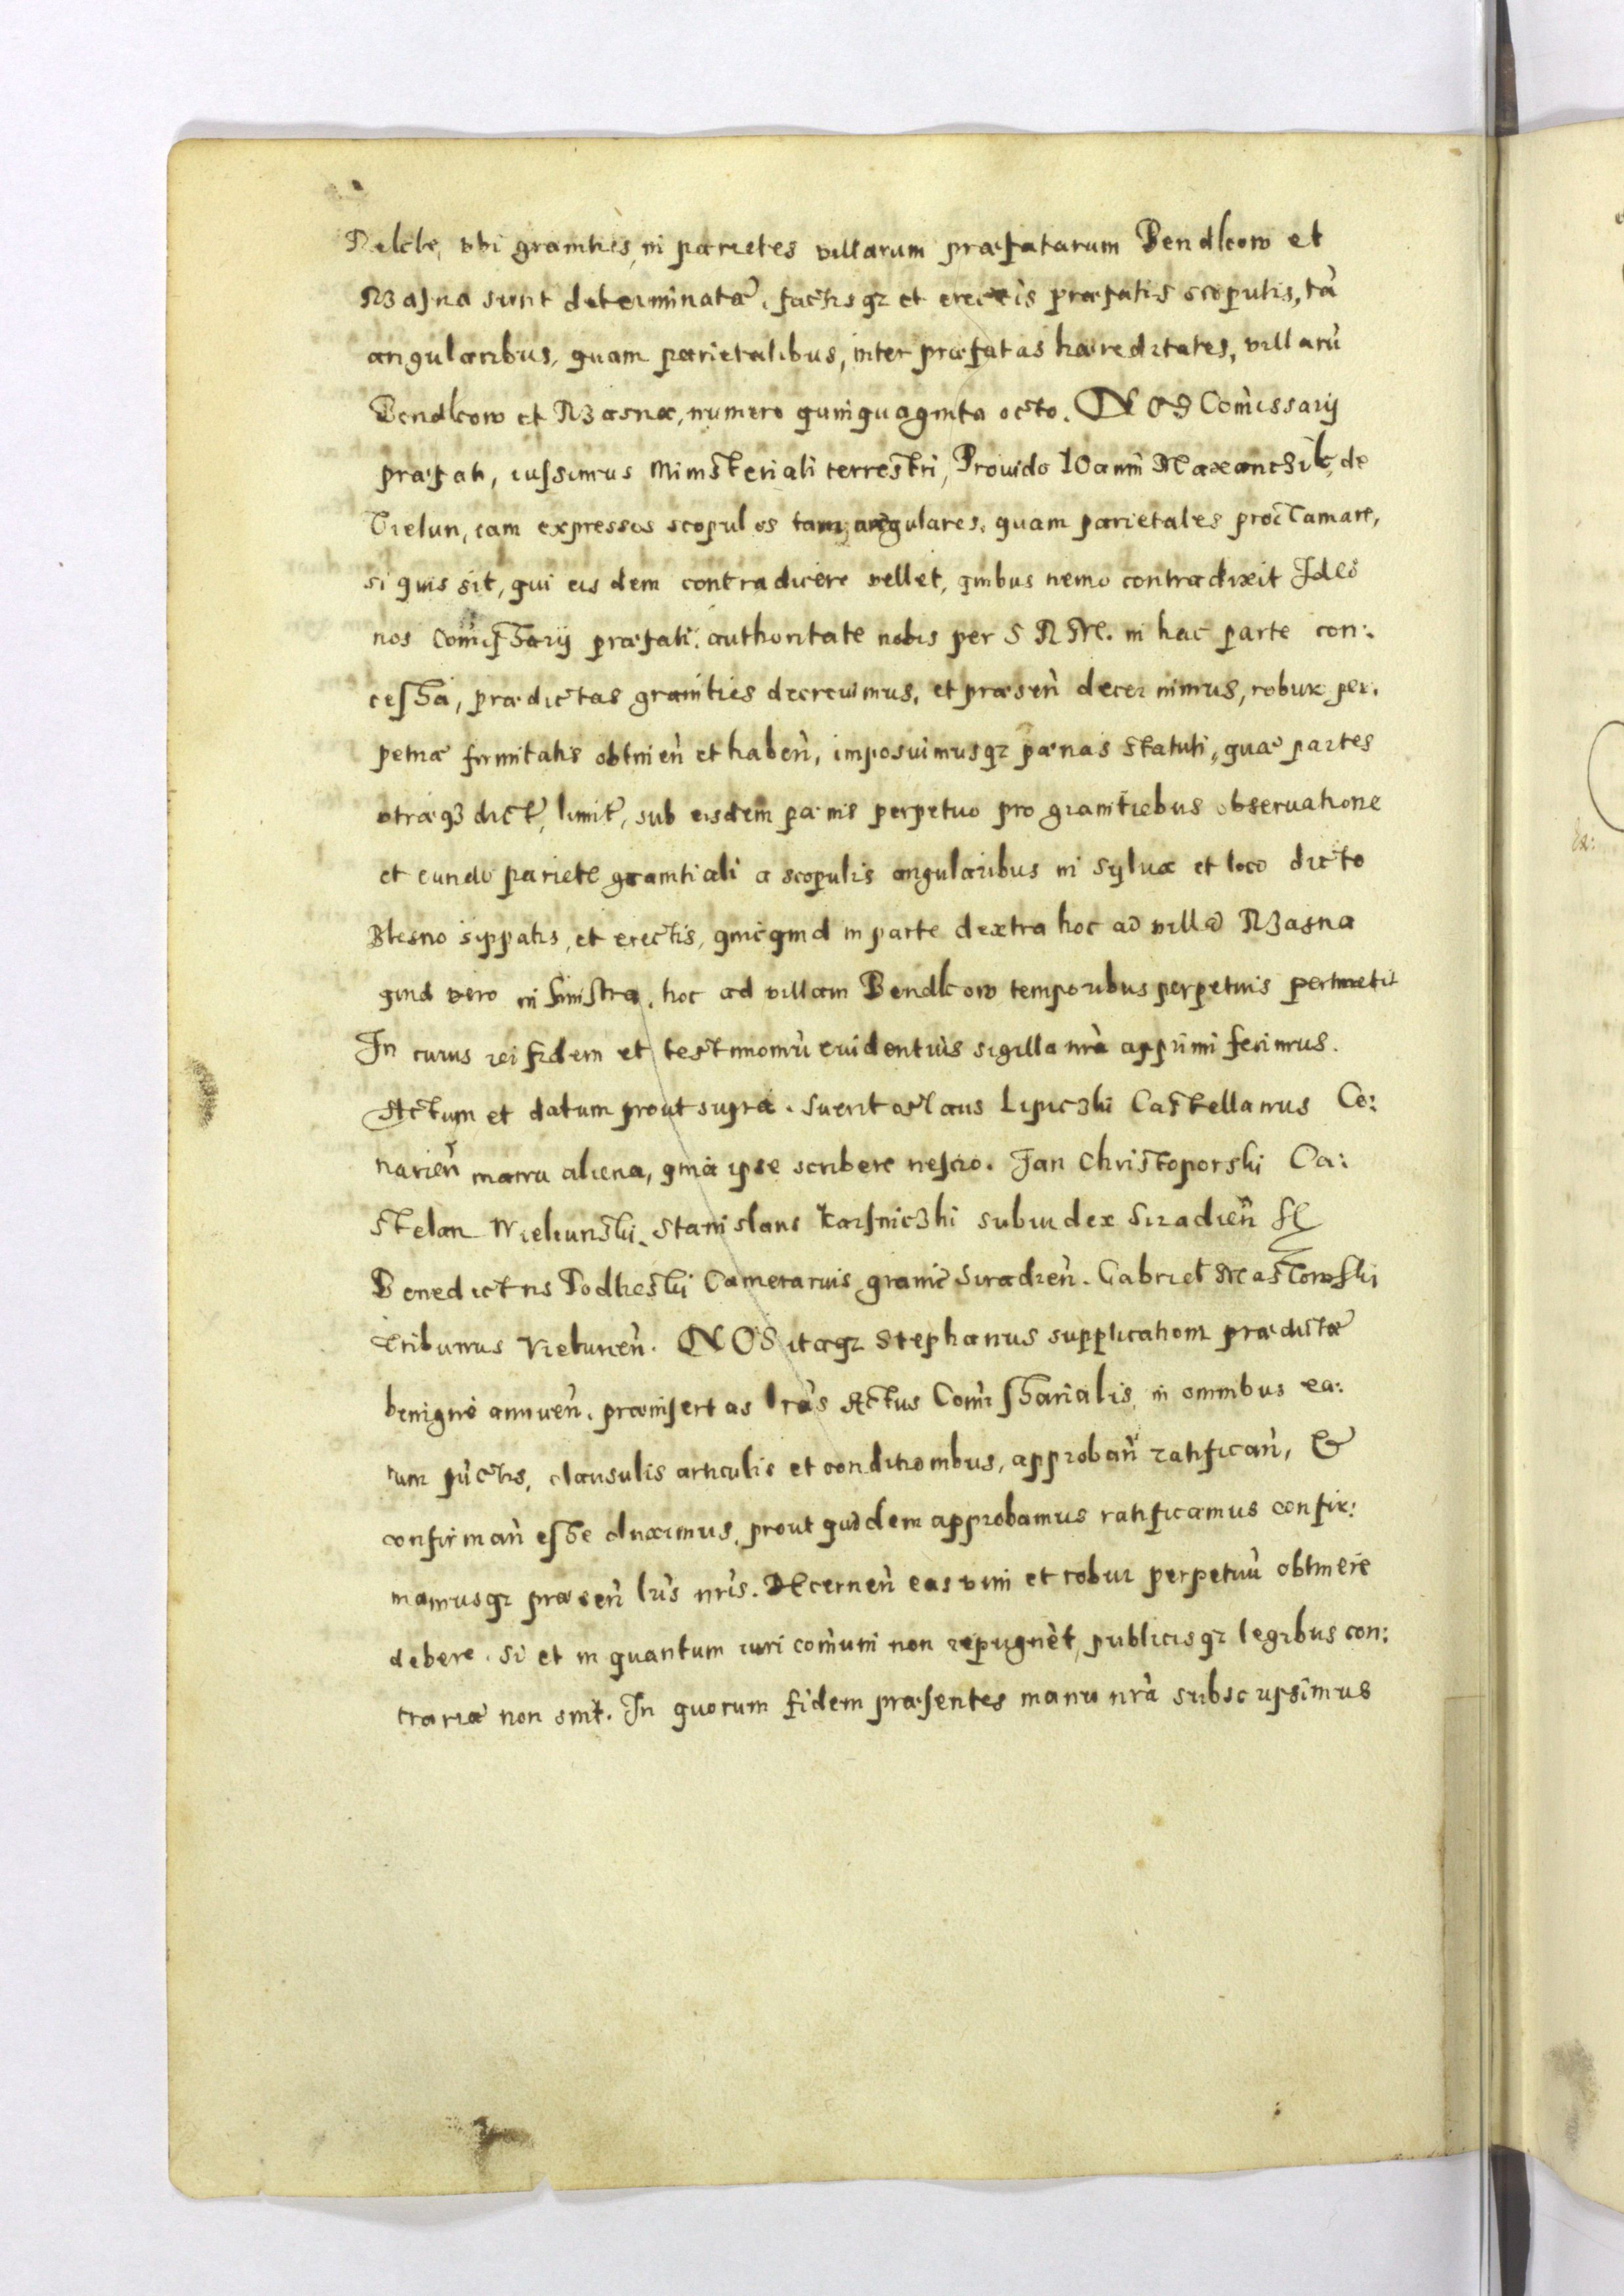 ubi granities, in parietes villarum præfatarum Bendkow et
Rzasna sunt determinatæ, factisqz et erectis præfatis scopulis, tā
angularibus, quam parietalibus, inter præfatas hæreditates, villarū
Bendkow et Rzasna, numero quinquaginta octo. NOS Com̄issarij
præfati, iussimus Ministeriali terrestri, Prouido IOanni de
Vielun, iam expressos scopulos tam angulares, quam parietales proclamare,
si quis sit, qui eisdem contradicere vellet, quibus nemo contradixit Ideo
nos Com̄issarij præfati, authoritate nobis per S R M. in hac parte con:
cessa, prædictas granities decreuimus, et præsen̄ decernimus, robur per:
petuæ firmitatis obtinen̄ et haben̄, imposuimusqz pænas statuti, quæ partes
vtræqз dict̄, limit̄, sub eisdem pænis perpetuo pro granitiebus obseruatione
et eundo pariete granitiali a scopulis angularibus in sylua et loco dicto
Blesno sippatis, et erectis, quicquid in parte dextra hoc ad villā Rzasna
quid vero in sinistra, hoc ad villam Bendkow temporibus perpetuis pertinebit
In cuius rei fidem et testimoniū euidentius sigilla nrā apprimi fecimus.
Actum et datum prout supra. Suentoslaus Lipiczki Castellanus Co:
narien̄ manu aliena, quia ipse scribere nescio. Jan Christoporski Ca:
stelan Wielunski. Stanislaus Karsniczki subiudex Siradien̄ ss
Benedictus Podlieski Camerarius granic̄ Siradien̄. Gabriel Maslowski
tribunus Vielunen̄. NOS itaqz Stephanus supplicationi prædictæ
benigne annuen̄, præinsertas lrās Actus Com̄issarialis, in omnibus ea:
rum pūctis, clausulis articulis et conditionibus, approban̄ ratifican̄, &
confirman̄ esse duximus, prout quidem approbamus ratificamus confir:
mamusqz præsen̄ lrīs nrīs. Decernen̄ eas vim et robur perpetuū obtinere
debere. Si et in quantum iuri com̄uni non repugnēt, publicisqz legibus con:
trariæ non sint. In quorum fidem præsentes manu nrā subscripsimus